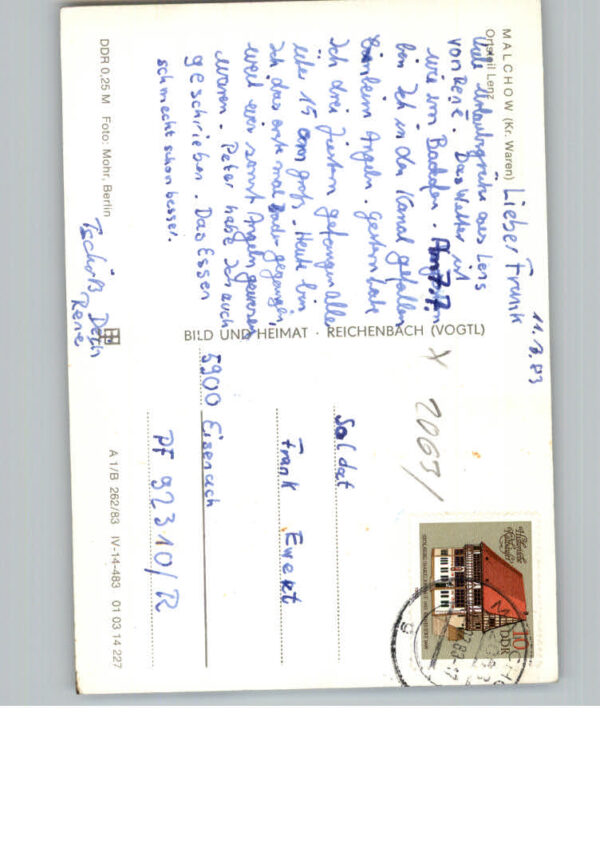 MALCHOW (Kr. Waren)
Ortsteil Lenz
11.7.83
Lieber Frank
Viele Urlaubsgrüße aus Lens
von René. Das Wetter ist
wie im Badofen. Am 7.7.
bin Ich in den Kanal gefallen
beim Angeln. gestern habe
Ich drei gefangen alle
über 15 cm groß. Heute bin
Ich das erste mal Baden gegangen,
weil wir sonst Angeln gewesen
waren. Peter habe Ich auch
geschrieben. Das Essen
schmeckt schon besser.
Tschüß Dein
Rene
DDR 0,25 M Foto: Mohr, Berlin
BILD UND HEIMAT · REICHENBACH (VOGTL)
X 2069/
Soldat
Frank Ewert
5900 Eisenach
PF 92310/R
A 1/B 262/83 IV-14-483 01 03 14 227
Historische
Rathäuser
10
DDR